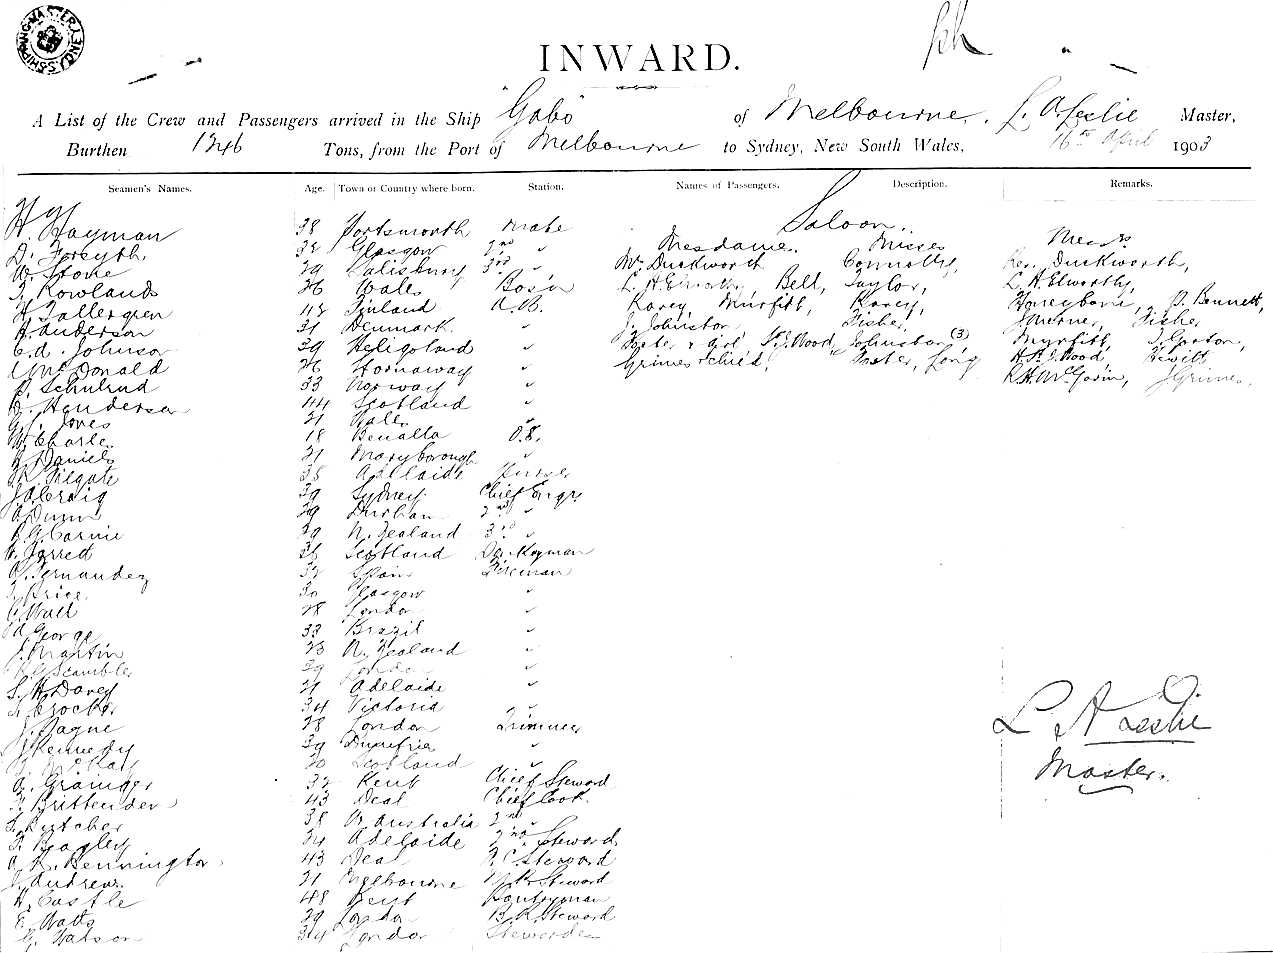 SHIPPING MASTER SYDNEY
INWARD.
A List of the Crew and Passengers arrived in the Ship "Gabo" of Melbourne, L. A. Leslie Master,
Burthen 1346 Tons, from the Port of Melbourne to Sydney, New South Wales, 16th April 1903
Seamen's Names. Age. Town or Country where born. Station. Names of Passengers. Description. Remarks.
Saloon.
H. Hayman 38 Portsmouth Mate Mesdames. Misses Messrs
D. Forsyth 32 Glasgow 2nd " Mrs Duckworth Connolly, Rev. Duckworth,
W. Stone 29 Salisbury 3rd " L. H. Elworthy, Bell, Taylor, L. H. Elworthy,
T. Rowlands 26 Wales Bos'n Karey, Murfitt, Karey, Honeybone, P. Bennett,
H. Tallergren 42 Finland A.B. J. Johnston Fisher, J Turner, Fisher
A. Anderson 31 Denmark " Foster & girl S.J. Wood, Johnston (3) Murfitt, S. Garton,
C. A. Johnson 39 Heligoland " Grimes & child, Foster, Long H. S. J. Wood, Hewitt
McDonald 26 Stornaway " R. H. McGavin, J Grimes.
P. Schulrud 33 Norway "
R. Henderson 44 Scotland "
G. J. Jones 21 Wales "
W. Charles 18 Benalla O.S.
R. Daniels 21 Maryborough "
R. Filgate 38 Adelaide Purser
J. A. Craig 39 Sydney Chief Engr
A. Dunn 29 Durham 2nd "
R. G. Carnie 29 N. Zealand 3rd "
W. Jarred 36 Scotland Do. Keyman
A. Fernandez 32 Spain Fireman
J. Price 30 Glasgow "
C. Wall 28 London "
A. George 33 Brazil "
J. Martin 23 N. Zealand "
R. G. Scambler 29 London "
S. H. Davey 21 Adelaide "
A. Crocker 34 Victoria "
J. Payne 28 London Trimmer
J. Kennedy 39 Dumfries "
McKay 20 Scotland "
A. Grainger 32 Kent Chief Steward
F. Brittenden 43 Deal Chief Cook.
F. Butcher 38 W. Australia 2nd "
F. Bagley 24 Adelaide 2nd Steward
A. R. Bennington 43 Deal F. C. Steward
J. Andrews. 21 Melbourne M. R. Steward
H. Castle 48 Kent Pantryman
E. Watts 29 London B. R. Steward
G. Watson 34 London Stewardess
L A Leslie
Master.